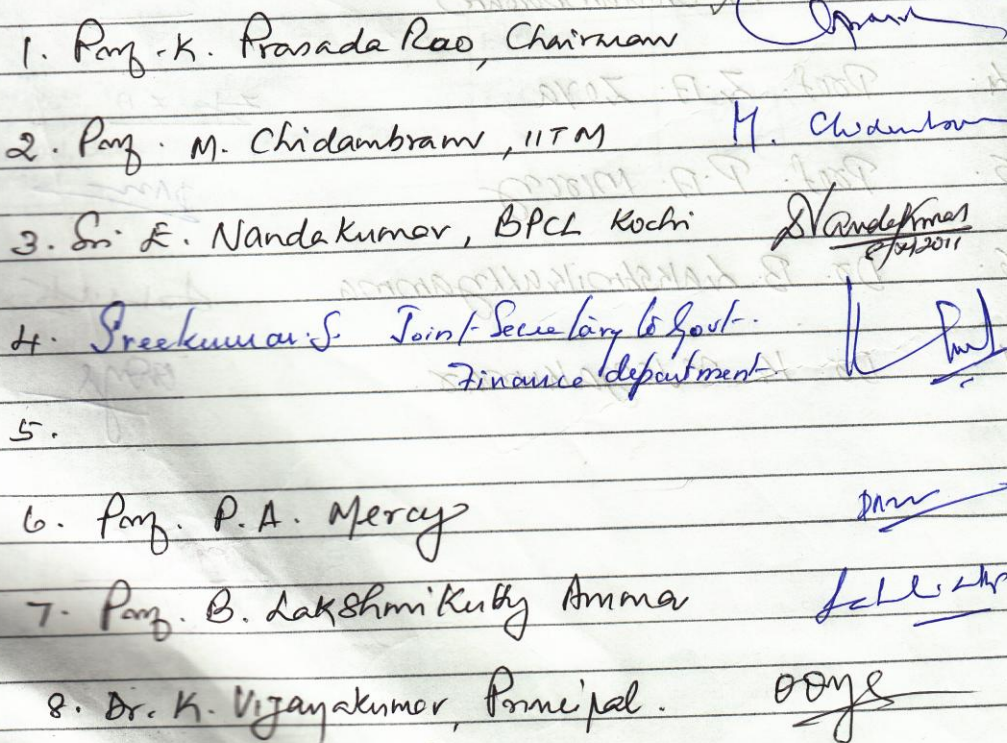 1. Prof. K. Prasada Rao, Chairman
2. Prof. M. Chidambram, IITM M. Chidambram
3. Sri E. Nandakumar, BPCL Kochi Nandakumar
4. Sreekumar. S. Joint Secretary to Govt.
Finance department.
5.
6. Prof. P.A. Mercy
7. Prof. B. Lakshmikutty Amma
8. Dr. K. Vijayakumar, Principal.